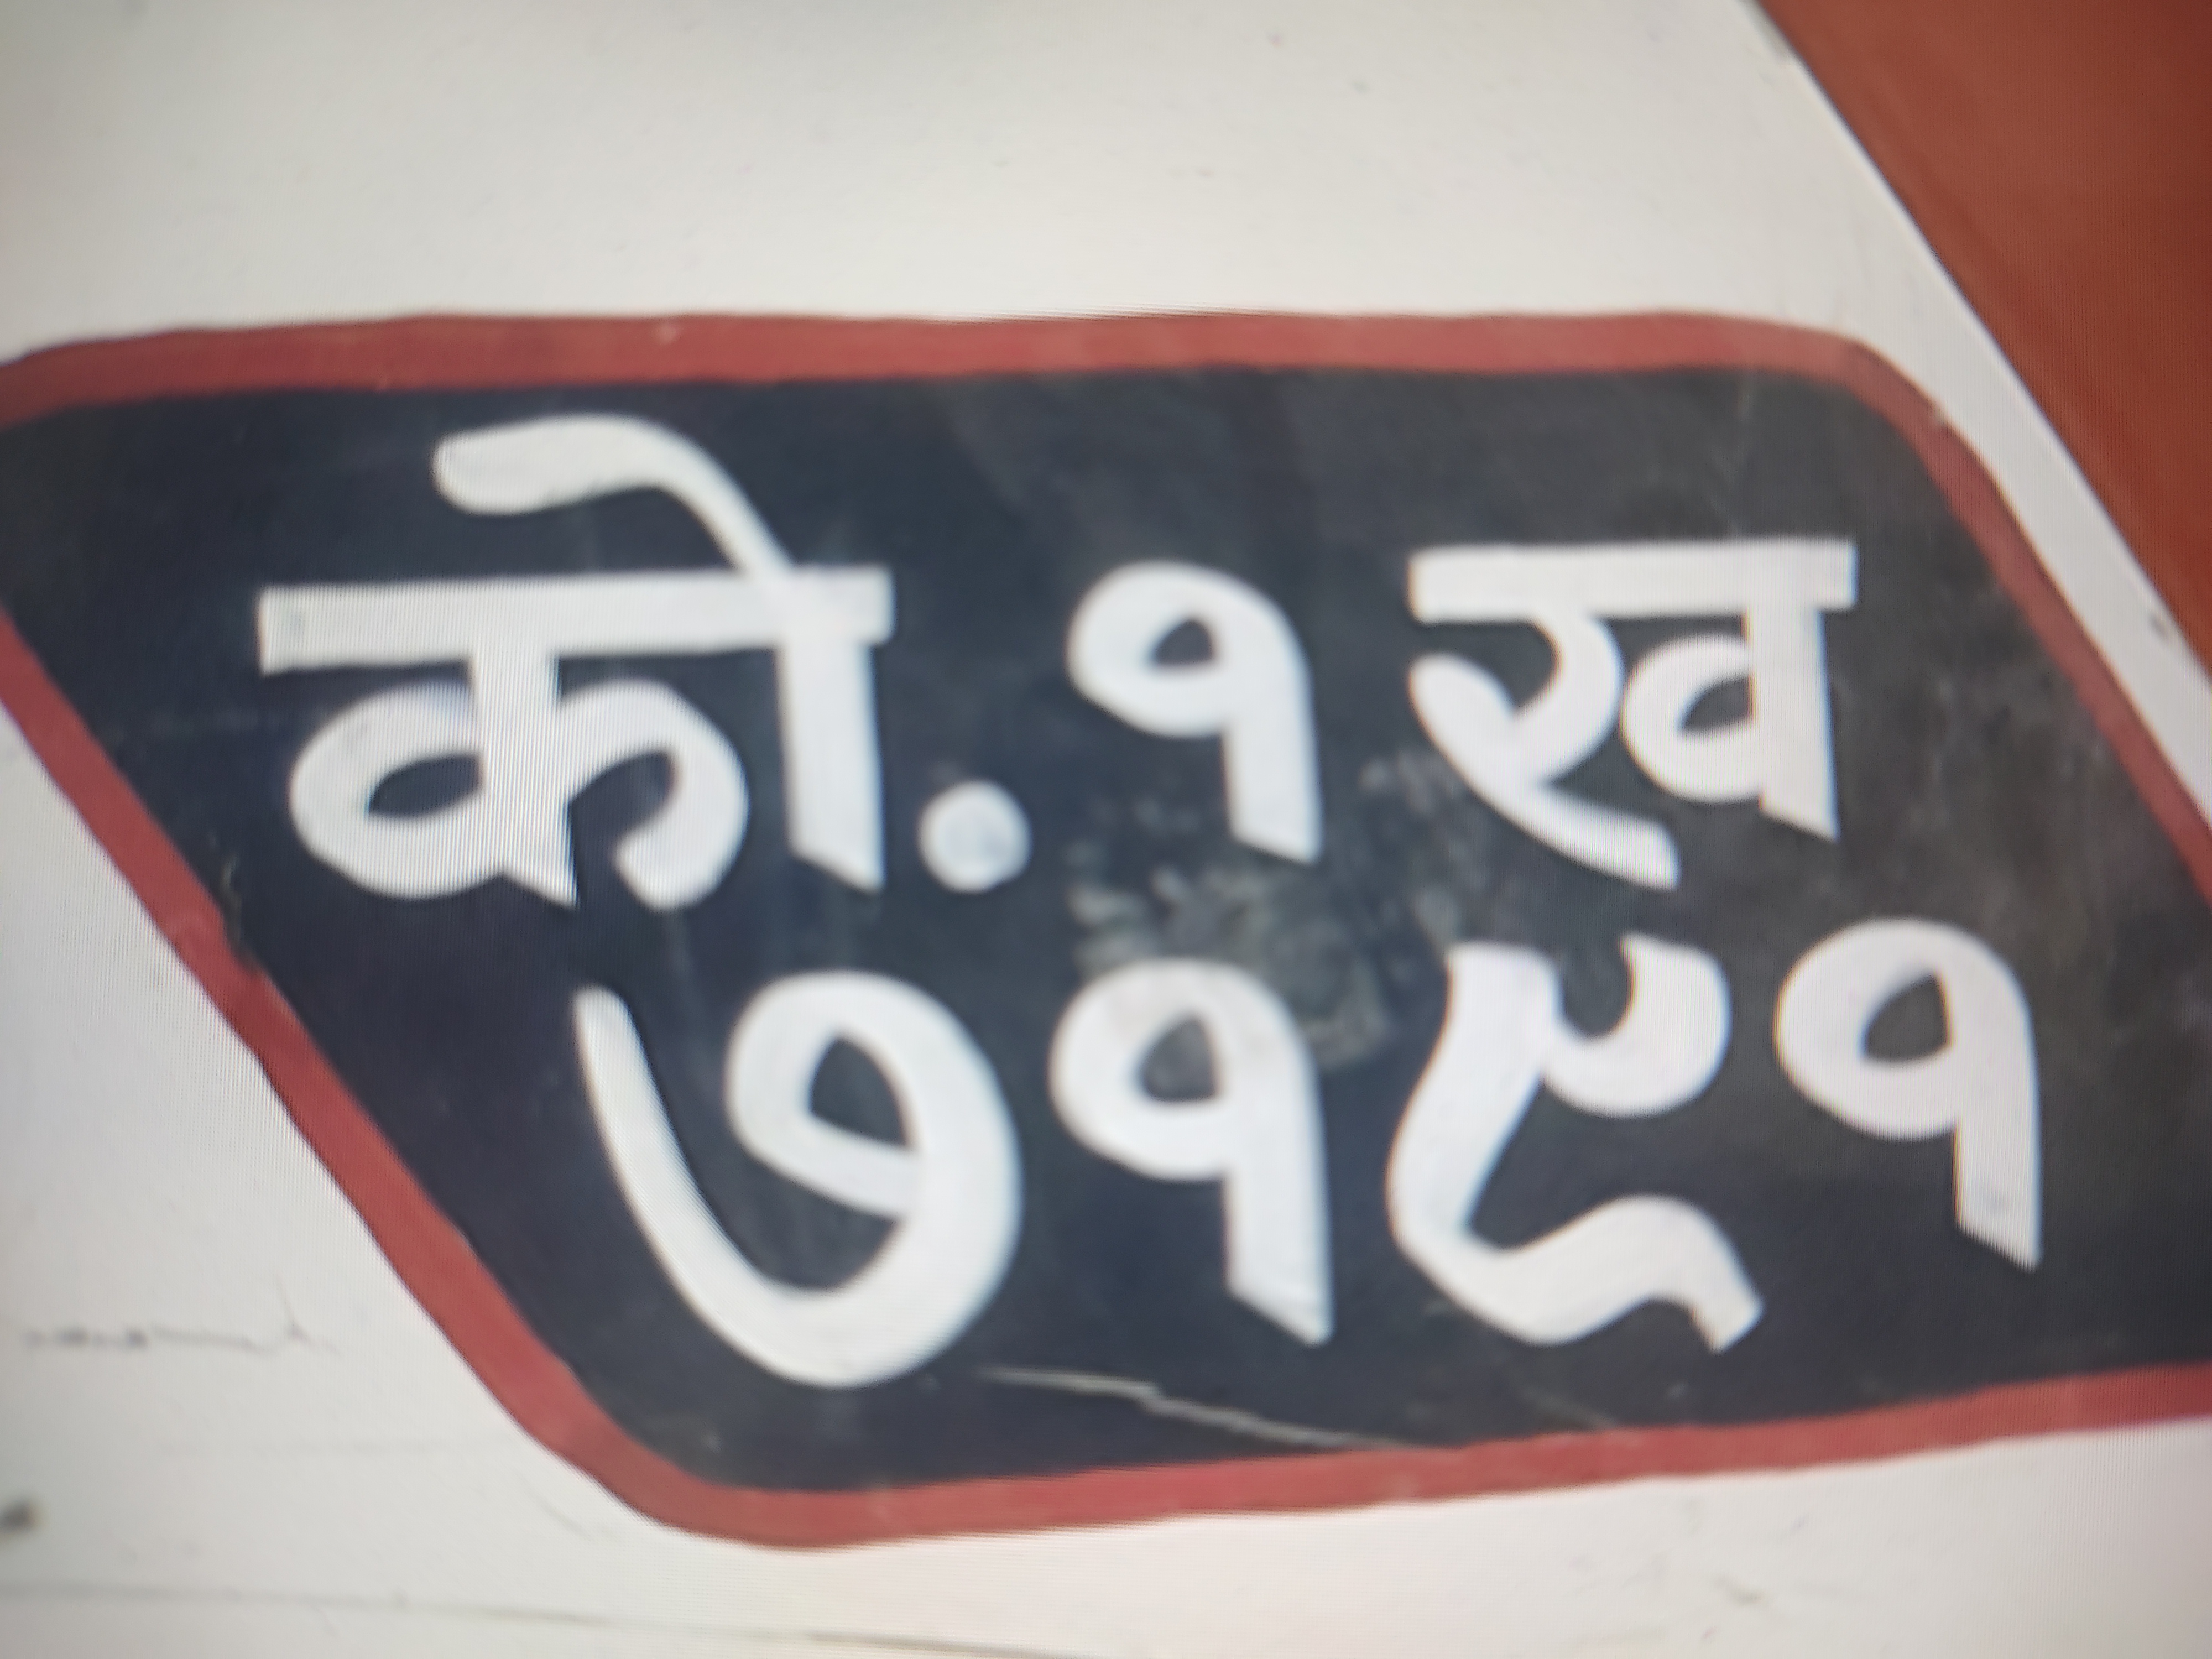 को. १ ख
७१९१